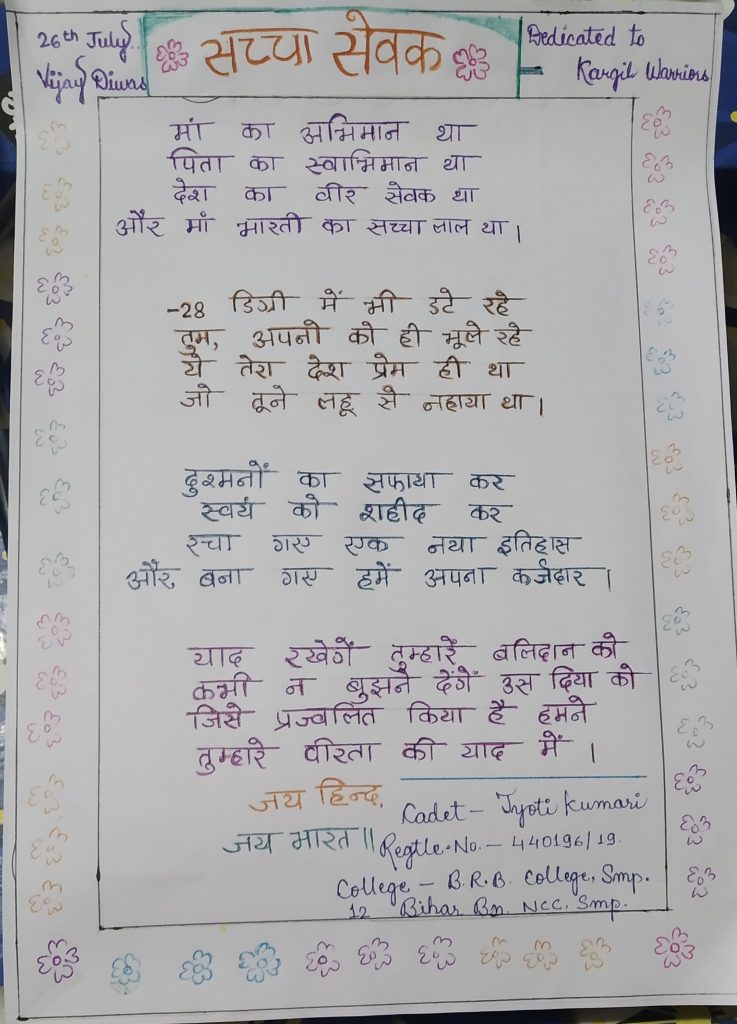 26th July
Vijay Diwas
सच्चा सेवक
Dedicated to
Kargil Warriors
मां का अभिमान था
पिता का स्वाभिमान था
देश का वीर सेवक था
और मां भारती का सच्चा लाल था।
-28 डिग्री में भी डटे रहे
तुम, अपनो को ही भूले रहे
ये तेरा देश प्रेम ही था
जो तूने लहू से नहाया था।
दुश्मनों का सफाया कर
स्वयं को शहीद कर
रचा गए एक नया इतिहास
और, बना गए हमें अपना कर्जदार।
याद रखेगें तुम्हारें बलिदान को
कभी न बुझने देंगें उस दिया को
जिसे प्रज्वलित किया है हमने
तुम्हारे वीरता की याद में ।
जय हिन्द,
जय भारत॥
Cadet - Jyoti Kumari
Regtle. No. - 440196/19.
College - B.R.B. College, Smp.
12 Bihar Bn. NCC. Smp.